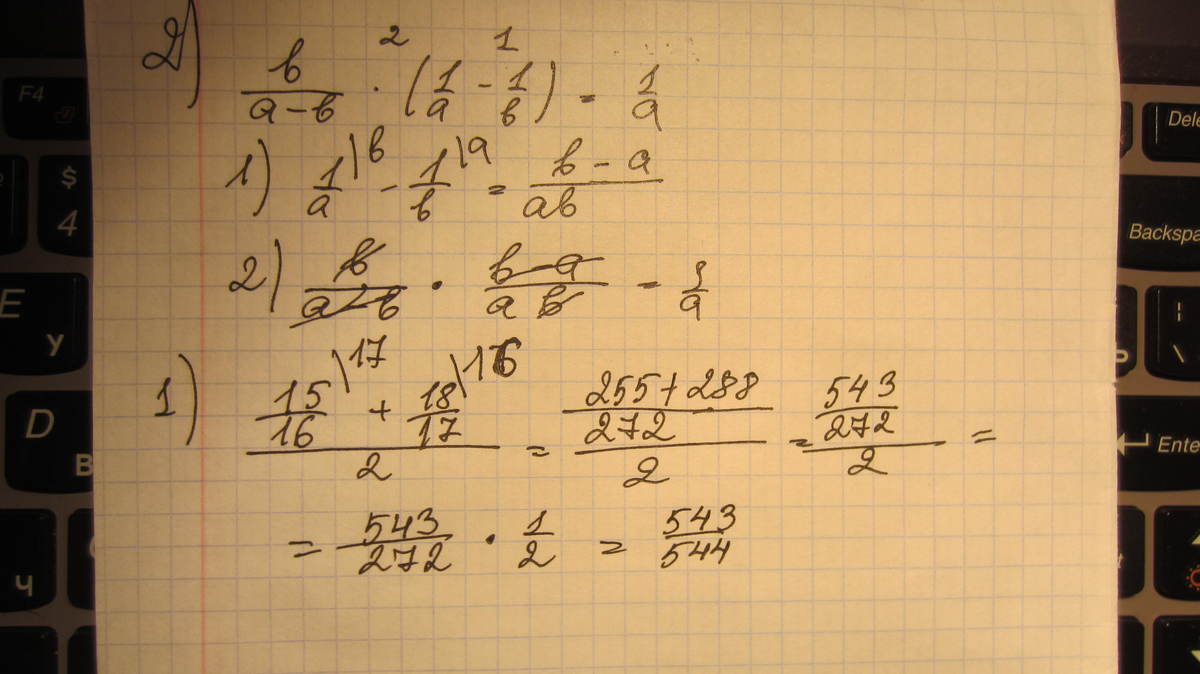 2) b/(a-b) · (1/a - 1/b) = 1/a
2 1
1) 1/a \b - 1/b \a = (b - a)/(ab)
2) b/(a-b) · (b-a)/(ab) = 1/a
1) (15/16 \17 + 18/17 \16)/2 = ((255+288)/272)/2 = (543/272)/2 =
= 543/272 · 1/2 = 543/544
F4
$
4
E
У
D
В
Ч
Dele
Backspa
\
Ь
Ente